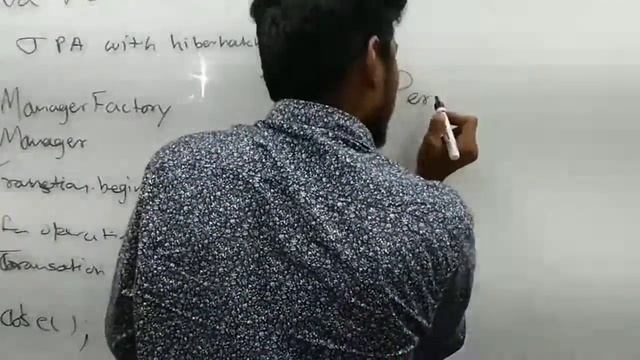 JPA with hiberhatch
Manager Factory
Manager
Transtion.begin
Transation
close();
Per